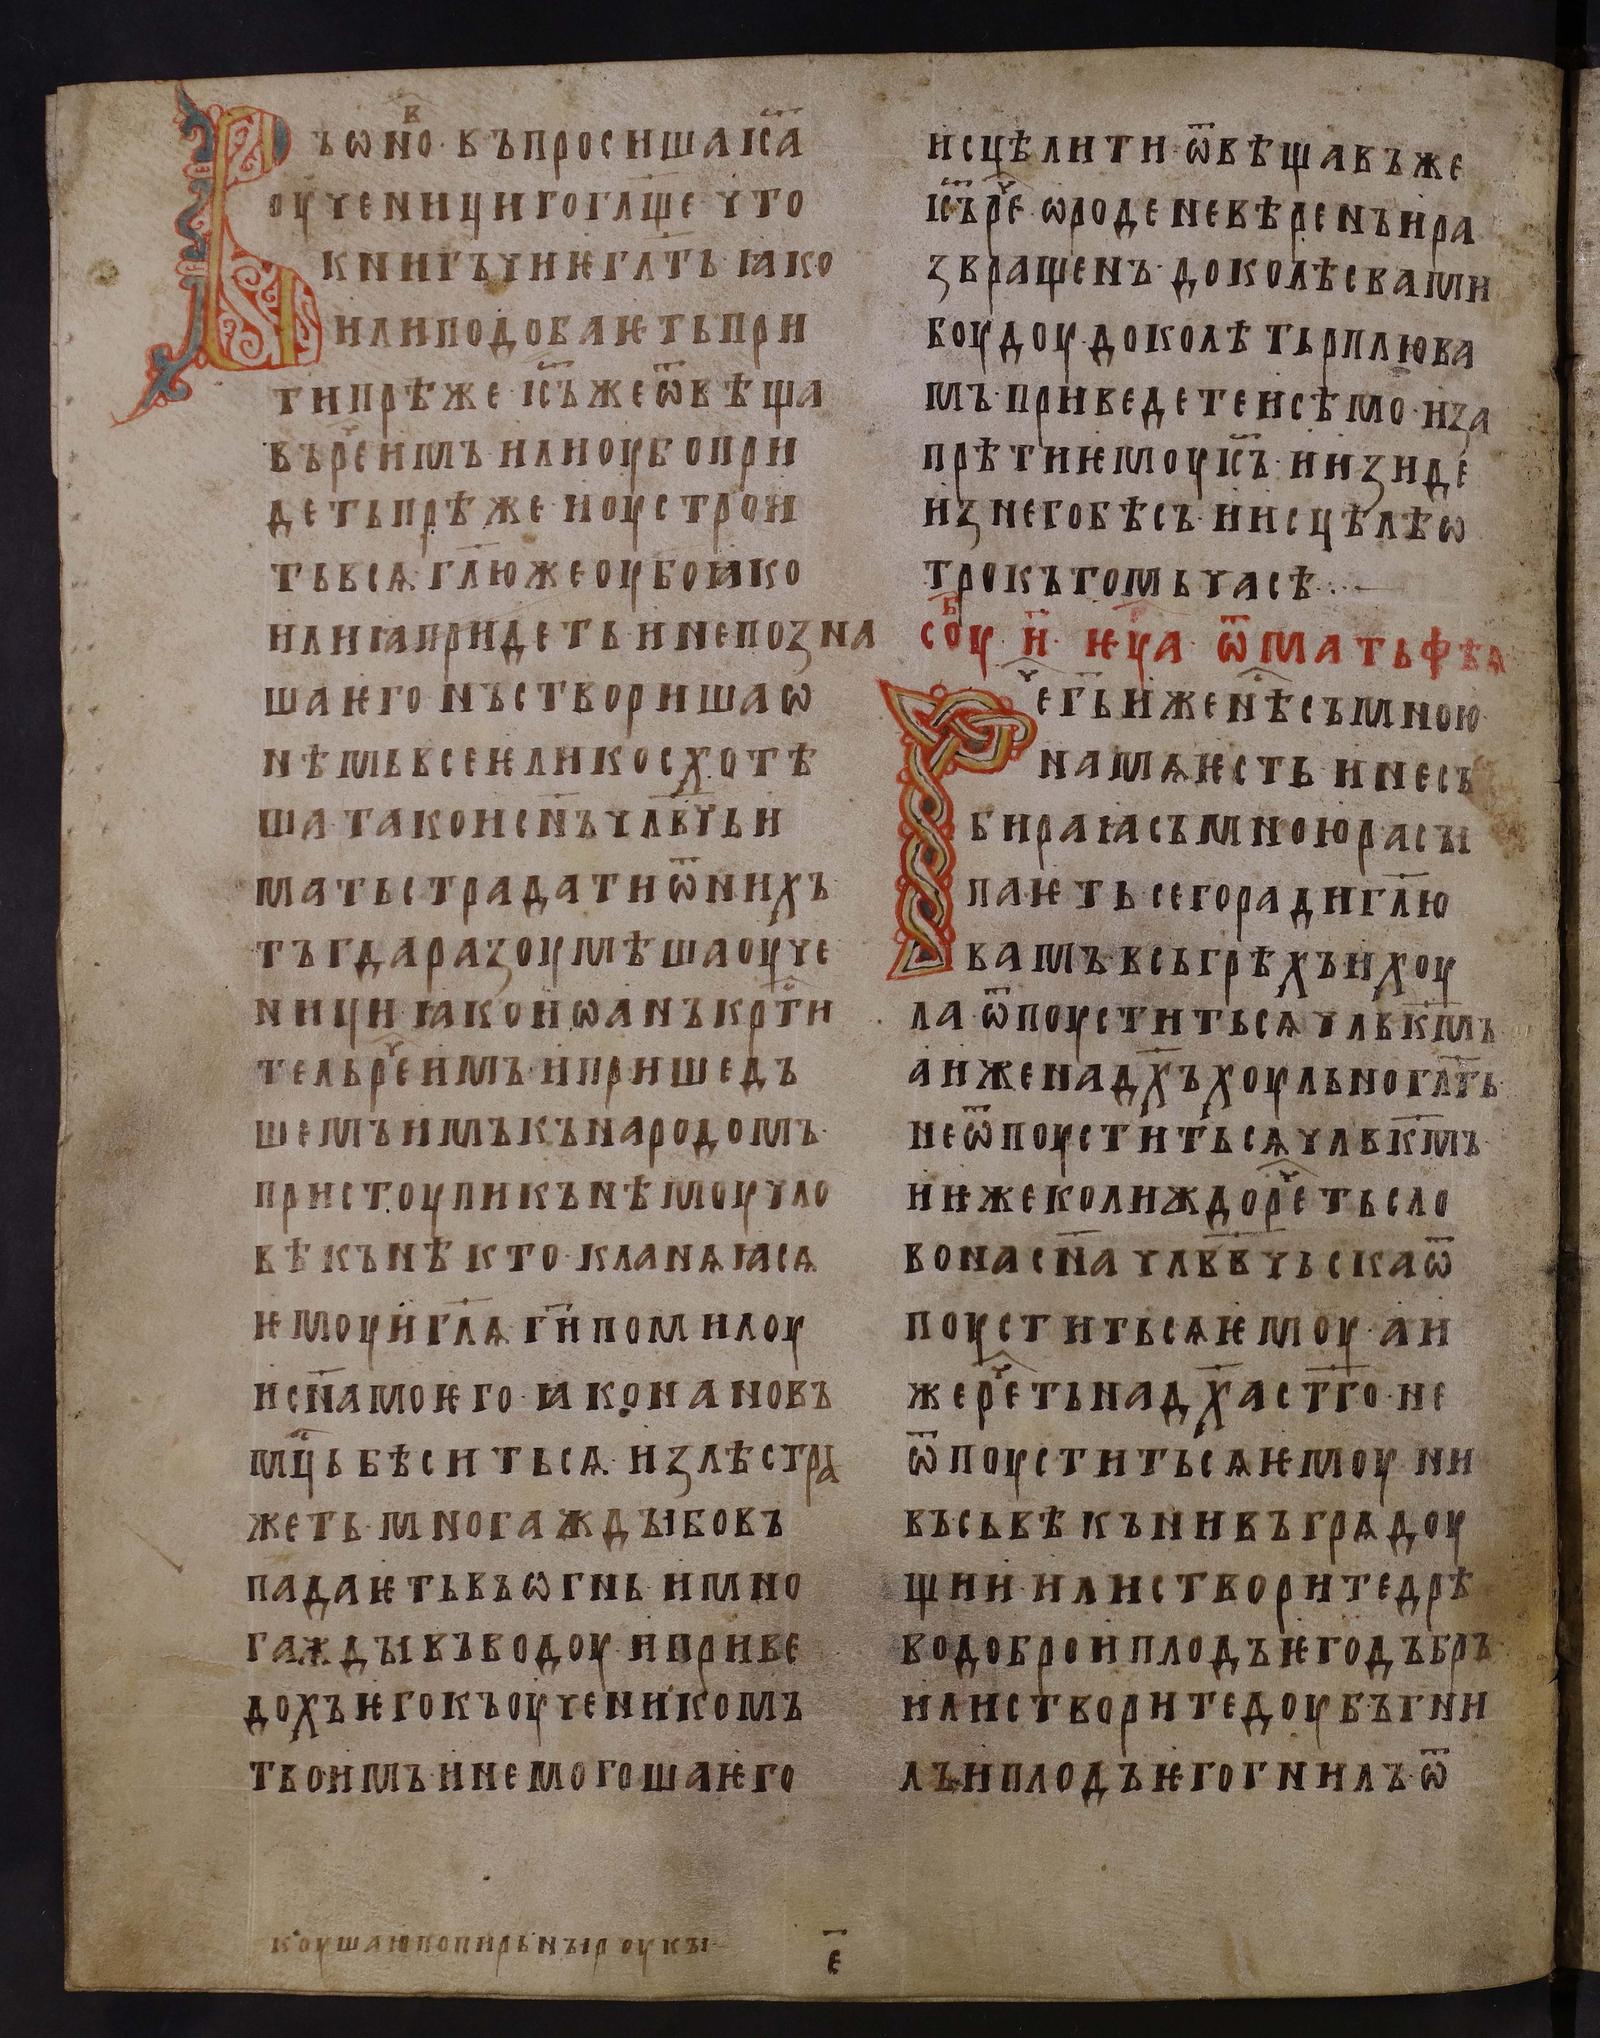 Въ ѡно҇в· въпросиша іс҃а
оученици ѥго гл҃ще· что
книгъчиѥ гл҃ть· ꙗко
или подобаѥть при
ти прѣже· іс҃ъ же ѿвѣща
въ ре҇ч имъ· или оубо при
деть прѣже· и оустрои
ть всѧ· гл҃ю же оубо ꙗко
или ꙗ придеть· и не позна
ша ѥго· нъ створиша ѡ
нѣмь все ѥлико схотѣ
ша· тако и сн҃ъ чл҃вчьи
мать страдати ѿ нихъ·
тъгда разоумѣша оуче
ници· ꙗко иѡанъ крт҃и
тель ре҇ч имъ· и пришедъ
шемъ имъ къ народомъ·
пристоупи къ нѣмоу чло
вѣкъ нѣкто· кланѧꙗсѧ
ѥмоу и гл҃ѧ· гн҃ помилоу
и сн҃а моѥго· ꙗко на новъ
мц҃ь бѣситьсѧ· и зълѣ стра
жеть· многажды бо въ
падаѥть въ ѡгнь· и мно
гажды въ водоу· и приве
дохъ ѥго къ оученикомъ
твоимъ· и не могоша ѥго
исцѣлити· ѿвѣщавъ же
іс҃ъ ре҇ч· ѡ роде невѣренъ и ра
звращенъ· доколѣ с вами
боудоу· доколѣ тьрплю ва
мъ· приведете и сѣмо· и за
прѣти ѥмоу іс҃ъ· и изиде
из него бѣсъ· и исцѣлѣ ѡ
трокъ томь часѣ·:·—
соу҇б· и҃· ѥу҃а ѿ матьфѣа
Ре҇ч гь҃· иже нѣ҇с съ мною
на мѧ ѥсть· и не съ
бираꙗ съ мною расы
паѥть· сего ради гл҃ю
вамъ· всь грѣхъ и хоу
ла ѿпоуститьсѧ члвк҃мъ
а иже на дх҃ъ хоульно гл҃ть
не ѿпоуститьсѧ члвк҃мъ·
и ѥже колиждо ре҇четь сло
во на сн҃а члв҃вчьска ѿ
поуститьсѧ ѥмоу· а и
же ре҇четь на дх҃а ст҃го· не
ѿпоуститьсѧ ѥмоу· ни
въ сь вѣкъ ни въ грѧдоу
щии· или створите дрѣ
во добро и плодъ ѥго дъбръ·
или створите доубъ гни
лъ и плодъ ѥго гнилъ· ѿ
коушаю попирьныр оукы
е҃